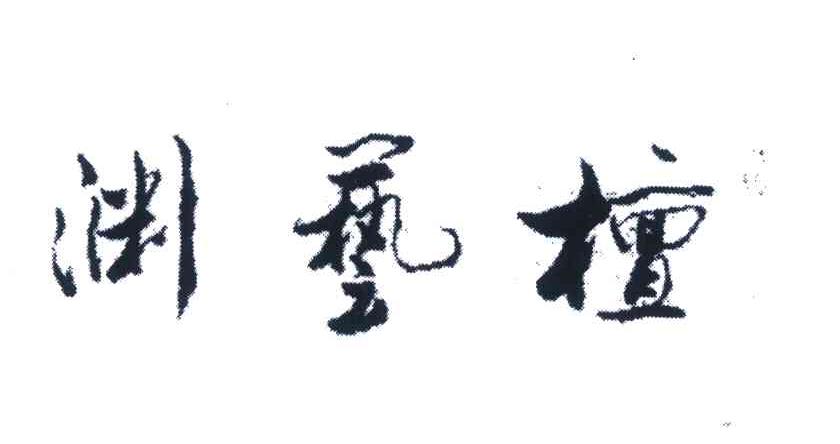 渊藝檀